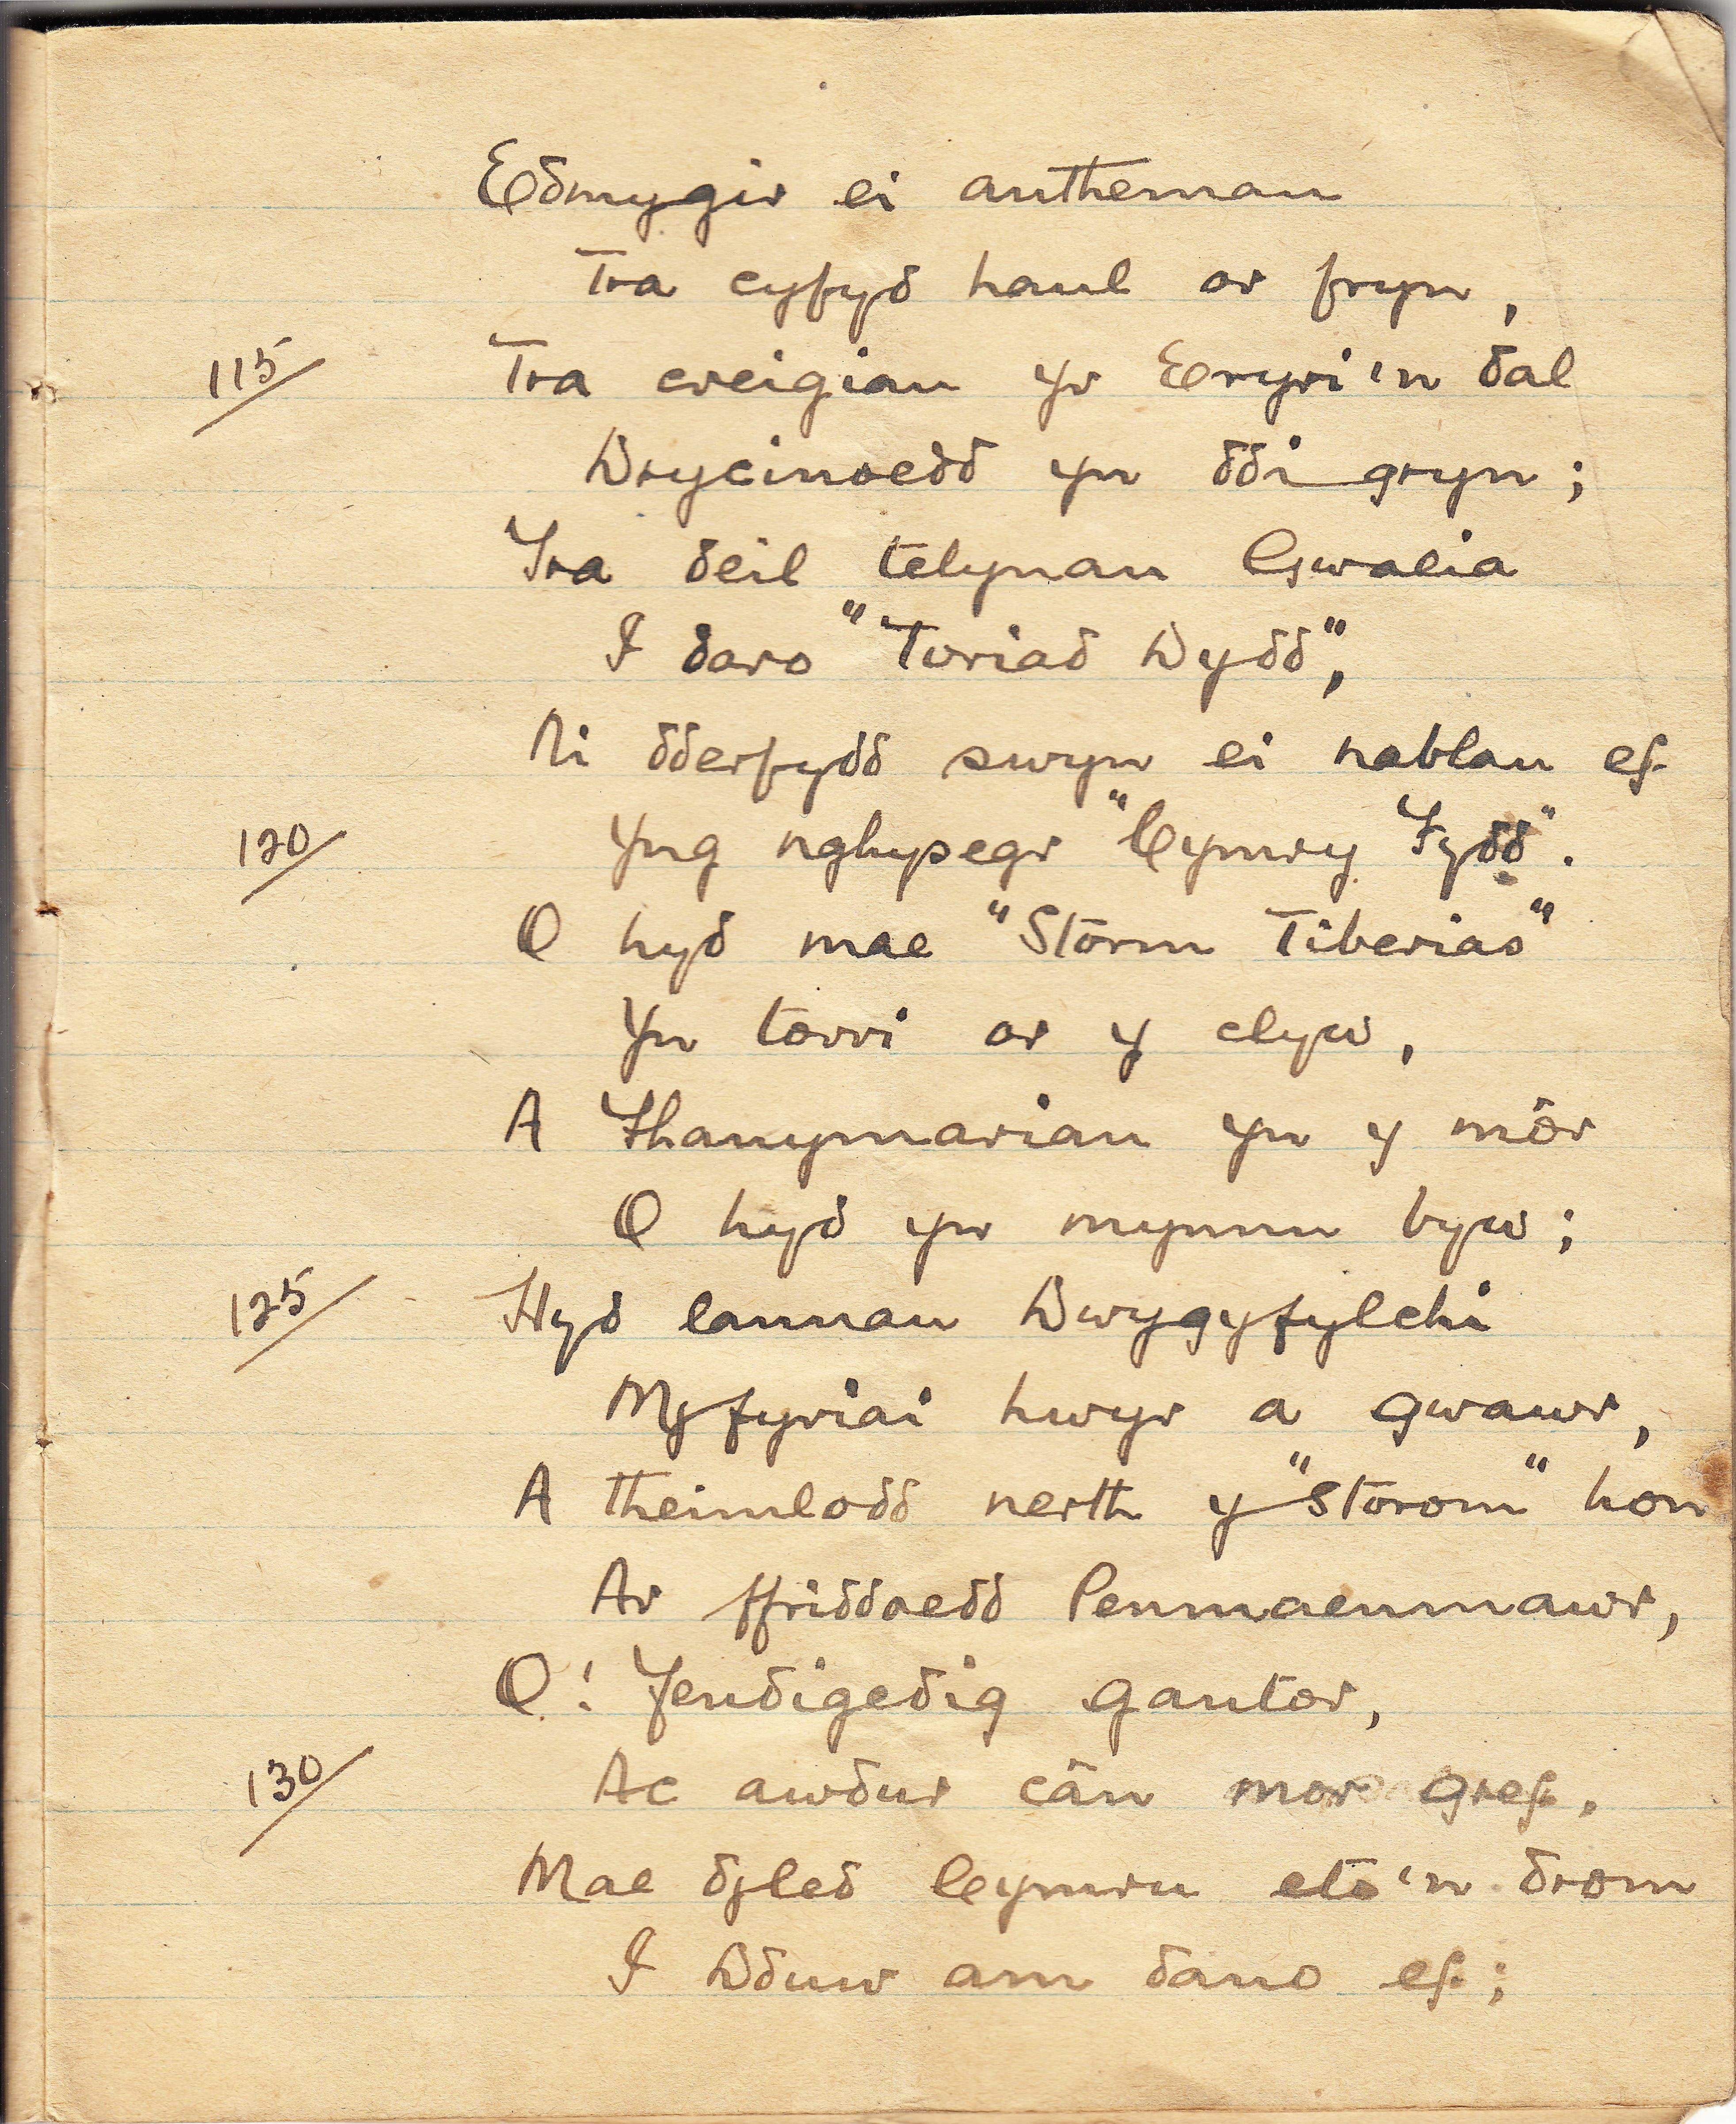 Edmygir ei anthemau
Tra cyfyd haul ar fryn,
115/ Tra creigiau yr Eryri'n dal
Drycinoedd yn ddi gryn;
Tra deil telynau Gwalia
I daro "Toriad Dydd",
Ni dderfydd swyn ei nablau ef
120/ Yng nghysegr "Cymry Fydd".
O hyd mae "Storm Tiberias"
Yn torri ar y clyw,
A Thanymarian yn y môr
O hyd yn mynnu byw;
125/ Hyd lannau Dwygyfylchi
Myfyriai hwyr a gwawr,
A theimlodd nerth y "Storom" hon
Ar ffriddoedd Penmaenmawr,
O! Fendigedig gantor,
130/ Ac awdur cân mor gref.
Mae dyled Cymru eto'n drom
I Dduw am dano ef;